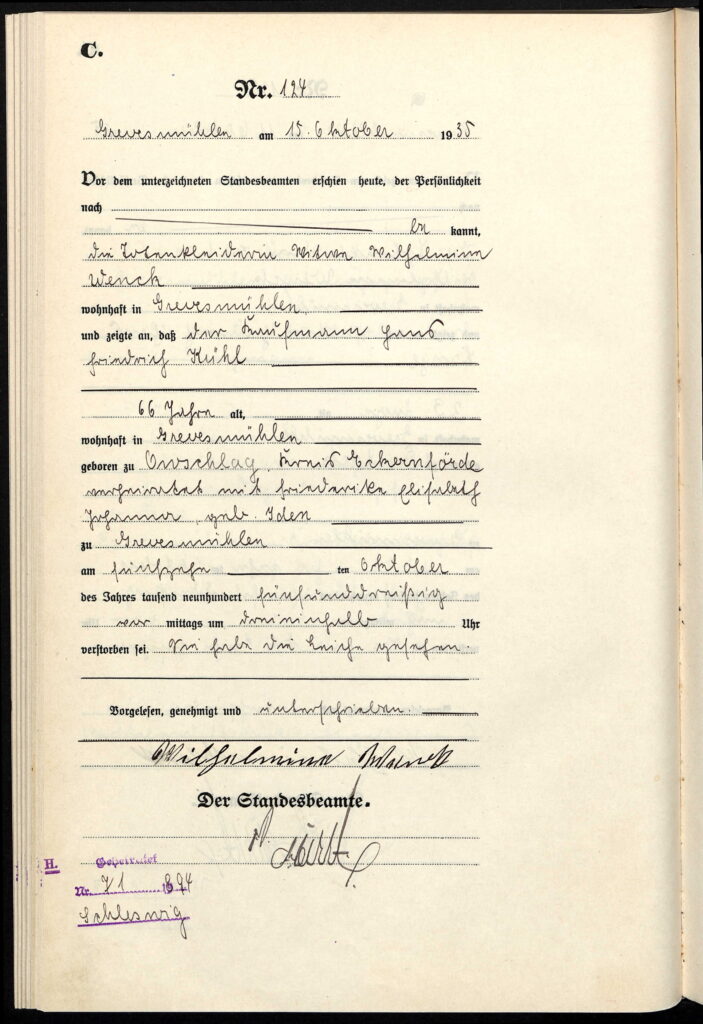 C.
Nr. 124
Grevesmühlen am 15. Oktober 1935
Vor dem unterzeichneten Standesbeamten erschien heute, der Persönlichkeit
nach
be kannt,
die Totenkleiderin Witwe Wilhelmine
Wenck
wohnhaft in Grevesmühlen
und zeigte an, daß der Kaufmann Hans
Friedrich Kühl
66 Jahre alt,
wohnhaft in Grevesmühlen
geboren zu Owschlag, Kreis Eckernförde
verheiratet mit Friederike Elisabeth
Johanna, geb. Iden
zu Grevesmühlen
am fünfzehn ten Oktober
des Jahres tausend neunhundert fünfunddreißig
vor mittags um dreieinhalb Uhr
verstorben sei. Sie habe die Leiche gesehen.
Vorgelesen, genehmigt und unterschrieben.
Wilhelmine Wenck
Der Standesbeamte.
H. Geheiratet
Nr. 71 1894
Schleswig